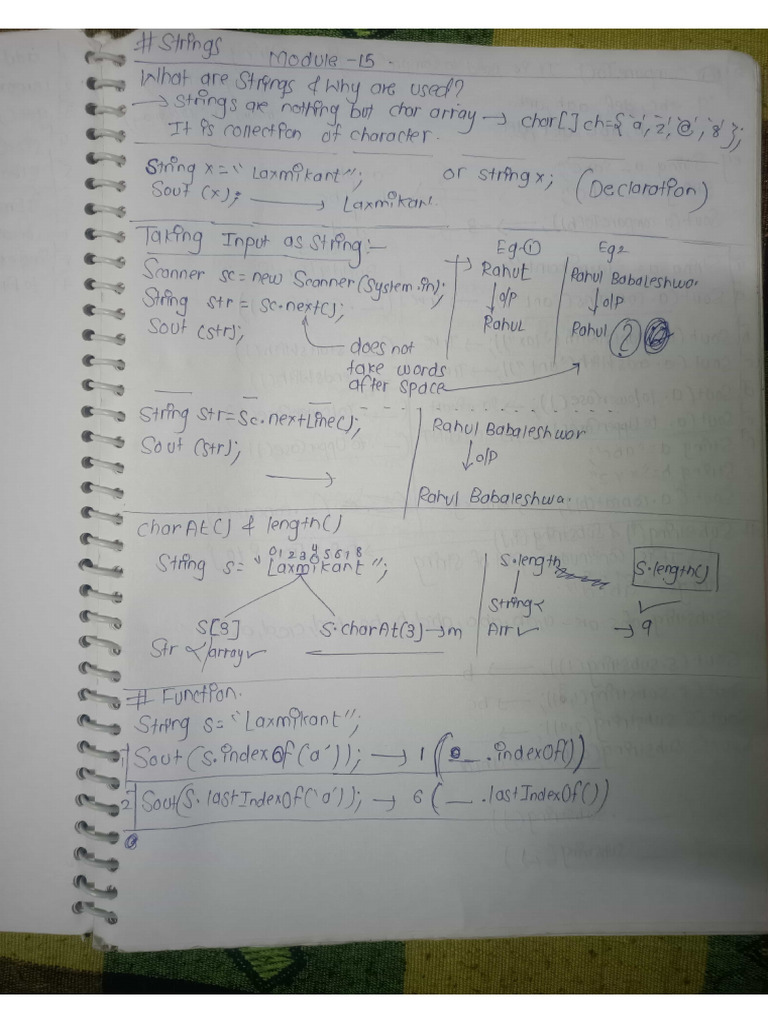 # Strings
Module - 15.
What are Strings & Why are used?
→ Strings are nothing but char array → char[] ch={'a','2','@','8'};
It is collection of character.
String x = "Laxmikant"; or string x; (Declaration)
Sout (x); → Laxmikant.
Taking Input as String:-
Eg-① Eg2
Scanner sc = new Scanner(System.in);
String str = sc.next();
Sout (str);
does not
take words
after space
→ Rahul
↓ o/p
Rahul
Rahul Babaleshwar
↓ o/p
Rahul ?
String str = Sc.nextLine();
Sout (str);
→
Rahul Babaleshwar
↓ o/p
Rahul Babaleshwa.
charAt() & length()
0 1 2 3 4 5 6 7 8
String s = "Laxmikant";
S[3] S.charAt(3) → m
Str × / array ✓
S.length
String ×
Arr ✓
S.length()
✓
→ 9
# Function.
String s = "Laxmikant";
1 Sout (s.indexOf('a')); → 1 (__.indexOf())
2 Sout (S.lastIndexOf('a')); → 6 (__.lastIndexOf())